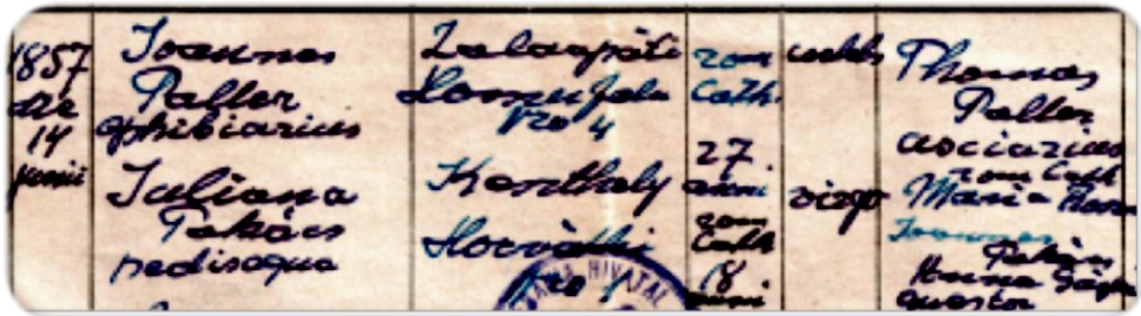 1857
die
14
junii
Joannes
Paller
ephibiarius
Juliana
Takács
pedisequa
Zalaapáti
No 4
Keszthely
Horváthi
rom
Cath.
27
anni
rom
Cath
18
anni
caelebs
virgo
Thomas
Paller
asciarius
rom Cath
Maria
Joannes
Takács
Anna
quaestor
HIVATAL